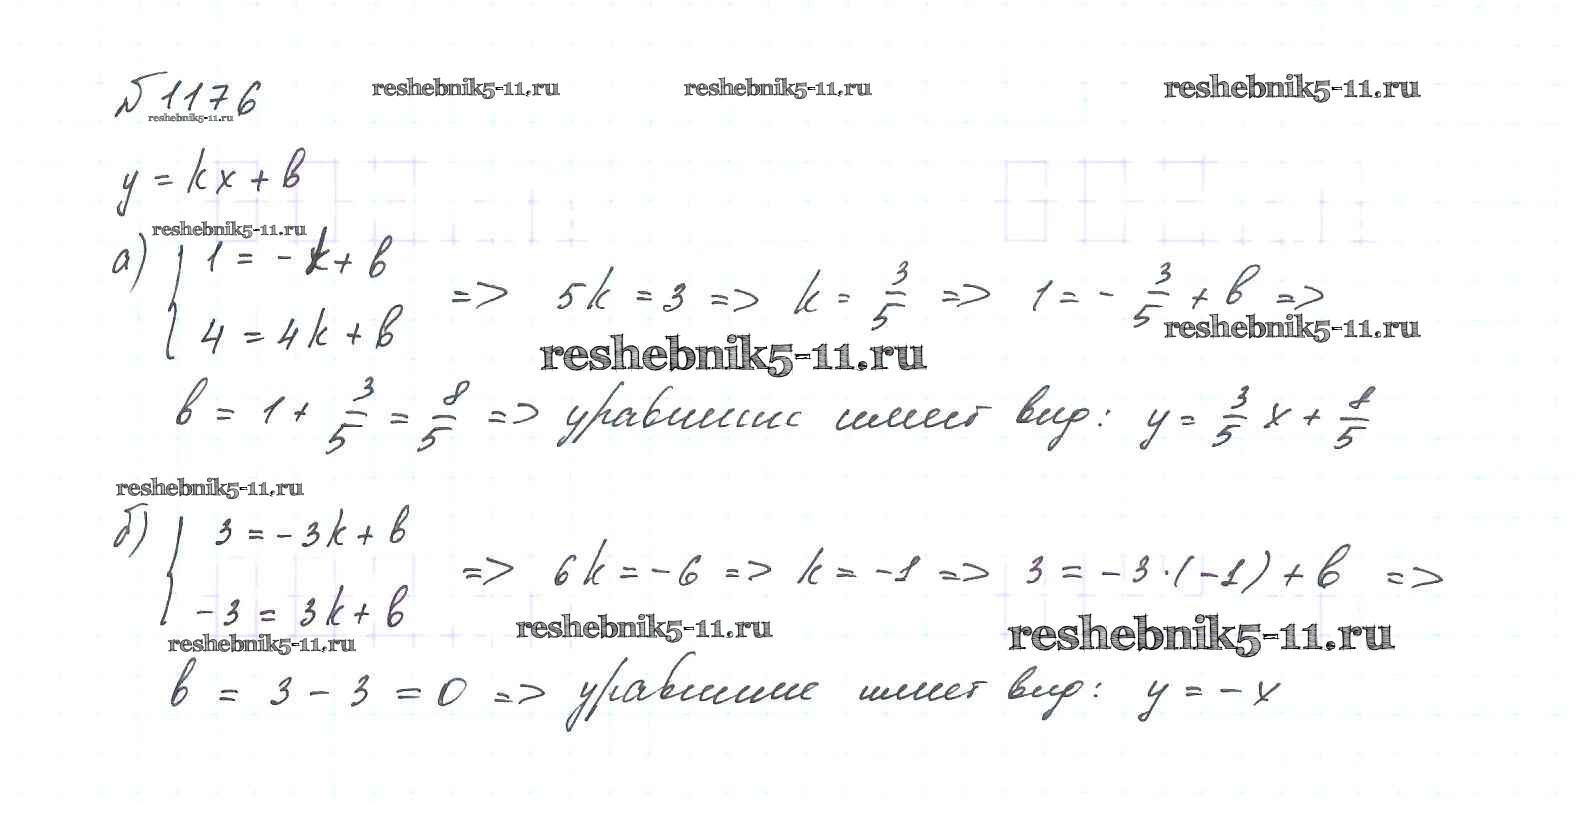 № 1176 reshebnik5-11.ru reshebnik5-11.ru reshebnik5-11.ru
reshebnik5-11.ru
y = kx + b
reshebnik5-11.ru
а) { 1 = - k + b
4 = 4k + b => 5k = 3 => k = 3/5 => 1 = - 3/5 + b =>
reshebnik5-11.ru reshebnik5-11.ru
b = 1 + 3/5 = 8/5 => уравнение имеет вид: y = 3/5 x + 8/5
reshebnik5-11.ru
б) { 3 = - 3k + b
- 3 = 3k + b => 6k = - 6 => k = - 1 => 3 = - 3 · (- 1) + b =>
reshebnik5-11.ru reshebnik5-11.ru reshebnik5-11.ru
b = 3 - 3 = 0 => уравнение имеет вид: y = - x